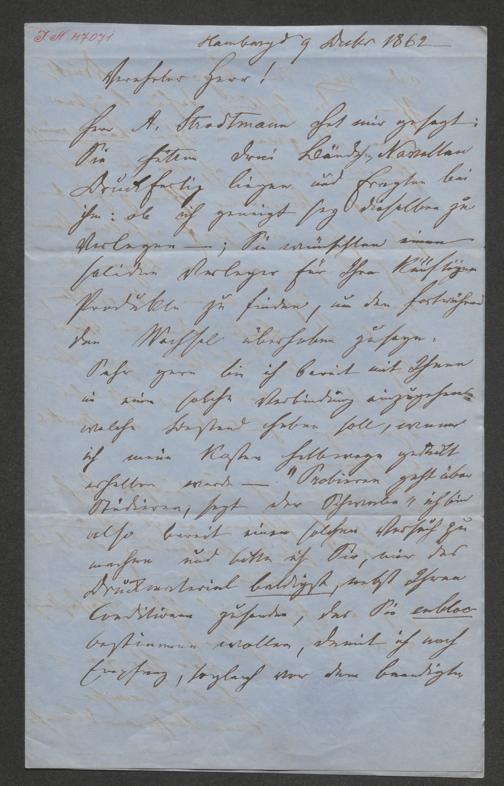 I.N. 47071
Hamburg d 9 Decbr 1862
Verehrter Herr!
Herr A. Strodtmann hat mir gesagt:
Sie hätten drei Bände Novellen
Druckfertig liegen und fragten bei
ihm: ob ich geneigt sey dieselben zu
Verlegen —; Sie wünschten einen
soliden Verleger für Ihre künftigen
Produkte zu finden, um den fortwähren
den Wechsel überhoben zu seyn.
Sehr gern bin ich bereit mit Ihnen
in eine solche Verbindung einzugehen
welche Bestand haben soll, wenn
ich meine Kosten halbwege gedeckt
erhalten werde — "Probieren geht über
Studieren, sagt der Schwabe" ich bin
also bereit einen solchen Versuch zu
machen und bitte ich Sie, mir das
Druckmaterial baldigst, nebst Ihren
Conditionen zusenden, das Sie enbloc
bestimmen wollen, damit ich nach
Empfang, sogleich vor dem beendigten